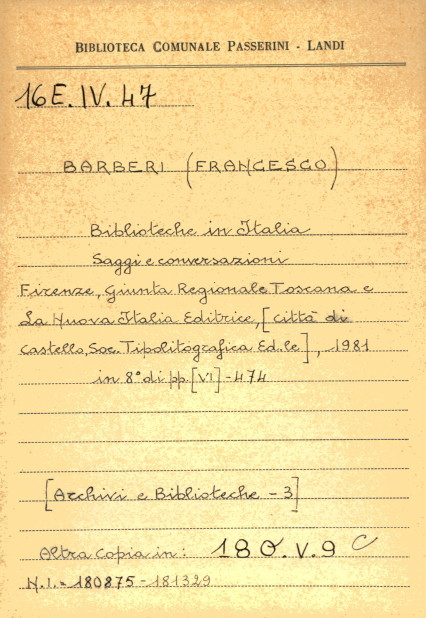 BIBLIOTECA COMUNALE PASSERINI - LANDI
16E.IV.47
BARBERI (FRANCESCO)
Biblioteche in Italia
Saggi e conversazioni
Firenze, Giunta Regionale Toscana e
La Nuova Italia Editrice, [Città di
Castello, Soc. Tipolitografica Ed.le], 1981
in 8° di pp. [VI]-474
[Archivi e Biblioteche - 3]
Altra copia in: 180.V.9 C
N.I. = 180875 - 181329